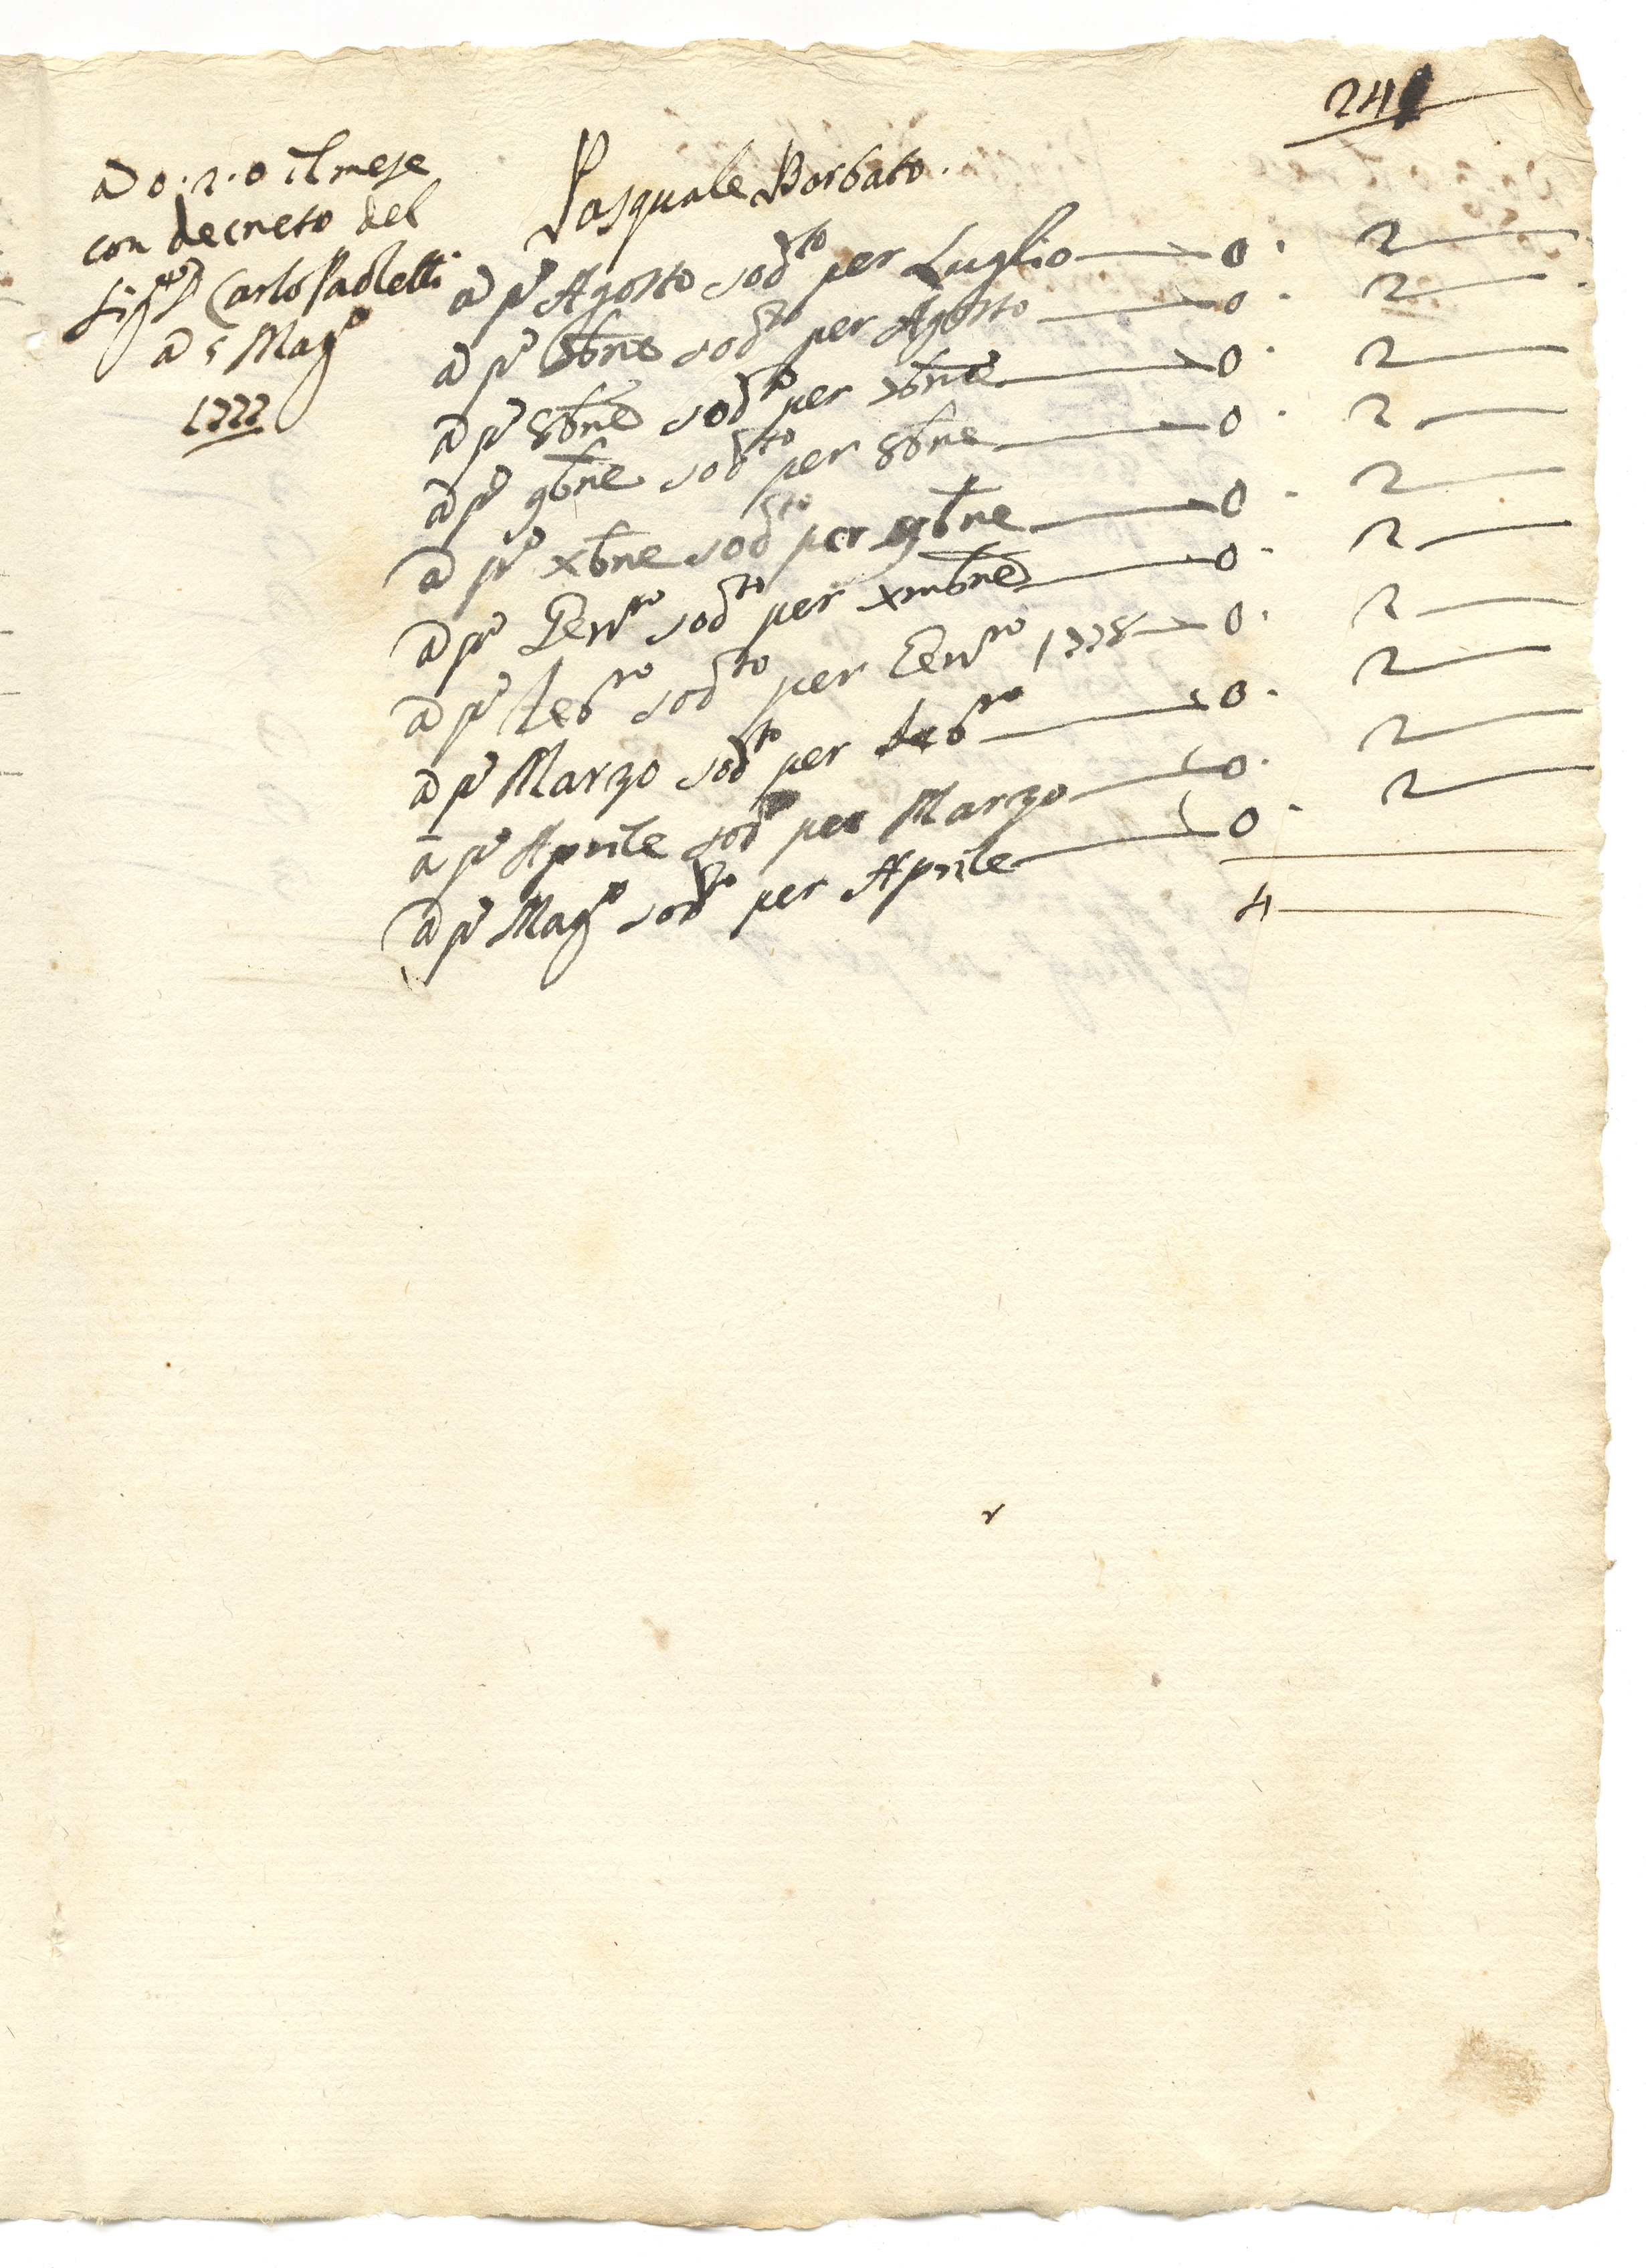 24
à 0.2.0 il mese
con decreto del
Sig.re Carlo Paoletti
à 5 Mag.o
1777
Pasquale Borbato.
à p.o Agosto sod.to per Luglio — 0. 2 —
à p.o 7bre sod.to per Agosto — 0. 2 —
à p.o 8bre sod.to per 7bre — 0. 2 —
à p.o 9bre sod.to per 8bre — 0. 2 —
à p.o xbre sod.to per 9bre — 0. 2 —
à p.o Genn.ro sod.to per xmbre — 0. 2 —
à p.o Feb.ro sod.to per Genn.ro 1778 — 0. 2 —
à p.o Marzo sod.to per Feb.ro — 0. 2 —
à p.o Aprile sod.to per Marzo — 0. 2 —
à p.o Mag.o sod.to per Aprile — 0. 2 —
4 —